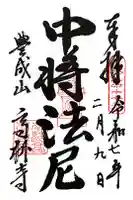 奉拝 令和七年
二月九日
中将法尼
豊成山 高林寺